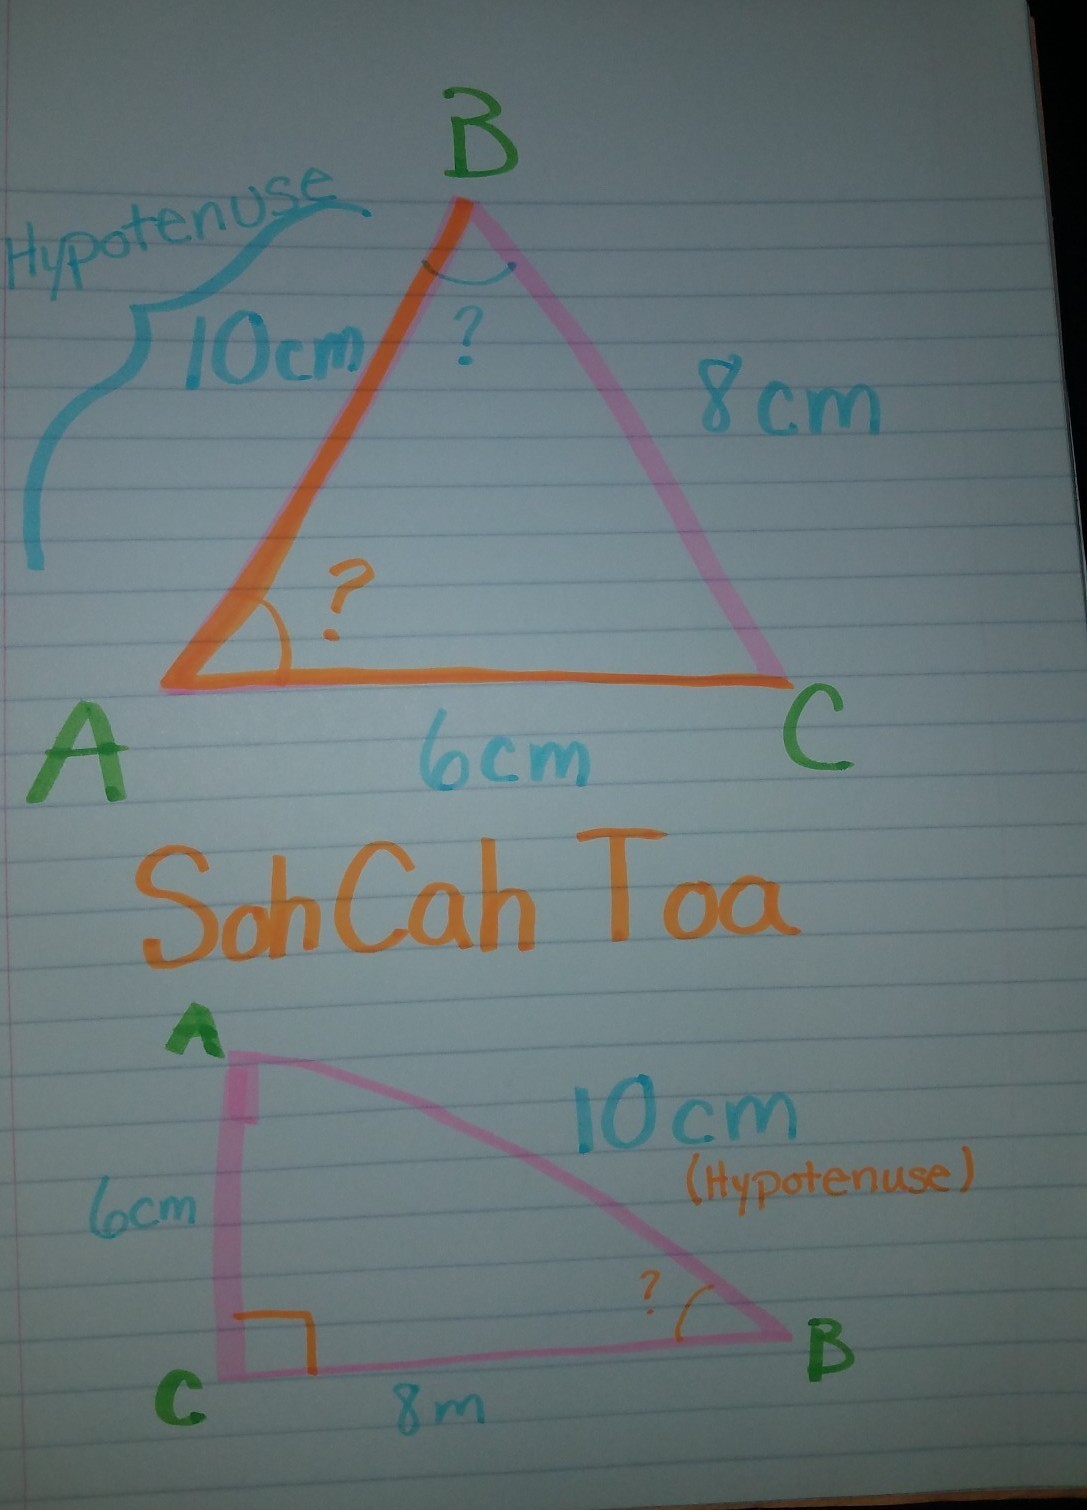 B
Hypotenuse
10cm
?
8cm
?
A
6cm
C
SohCahToa
A
10cm
(Hypotenuse)
6cm
?
B
C
8m